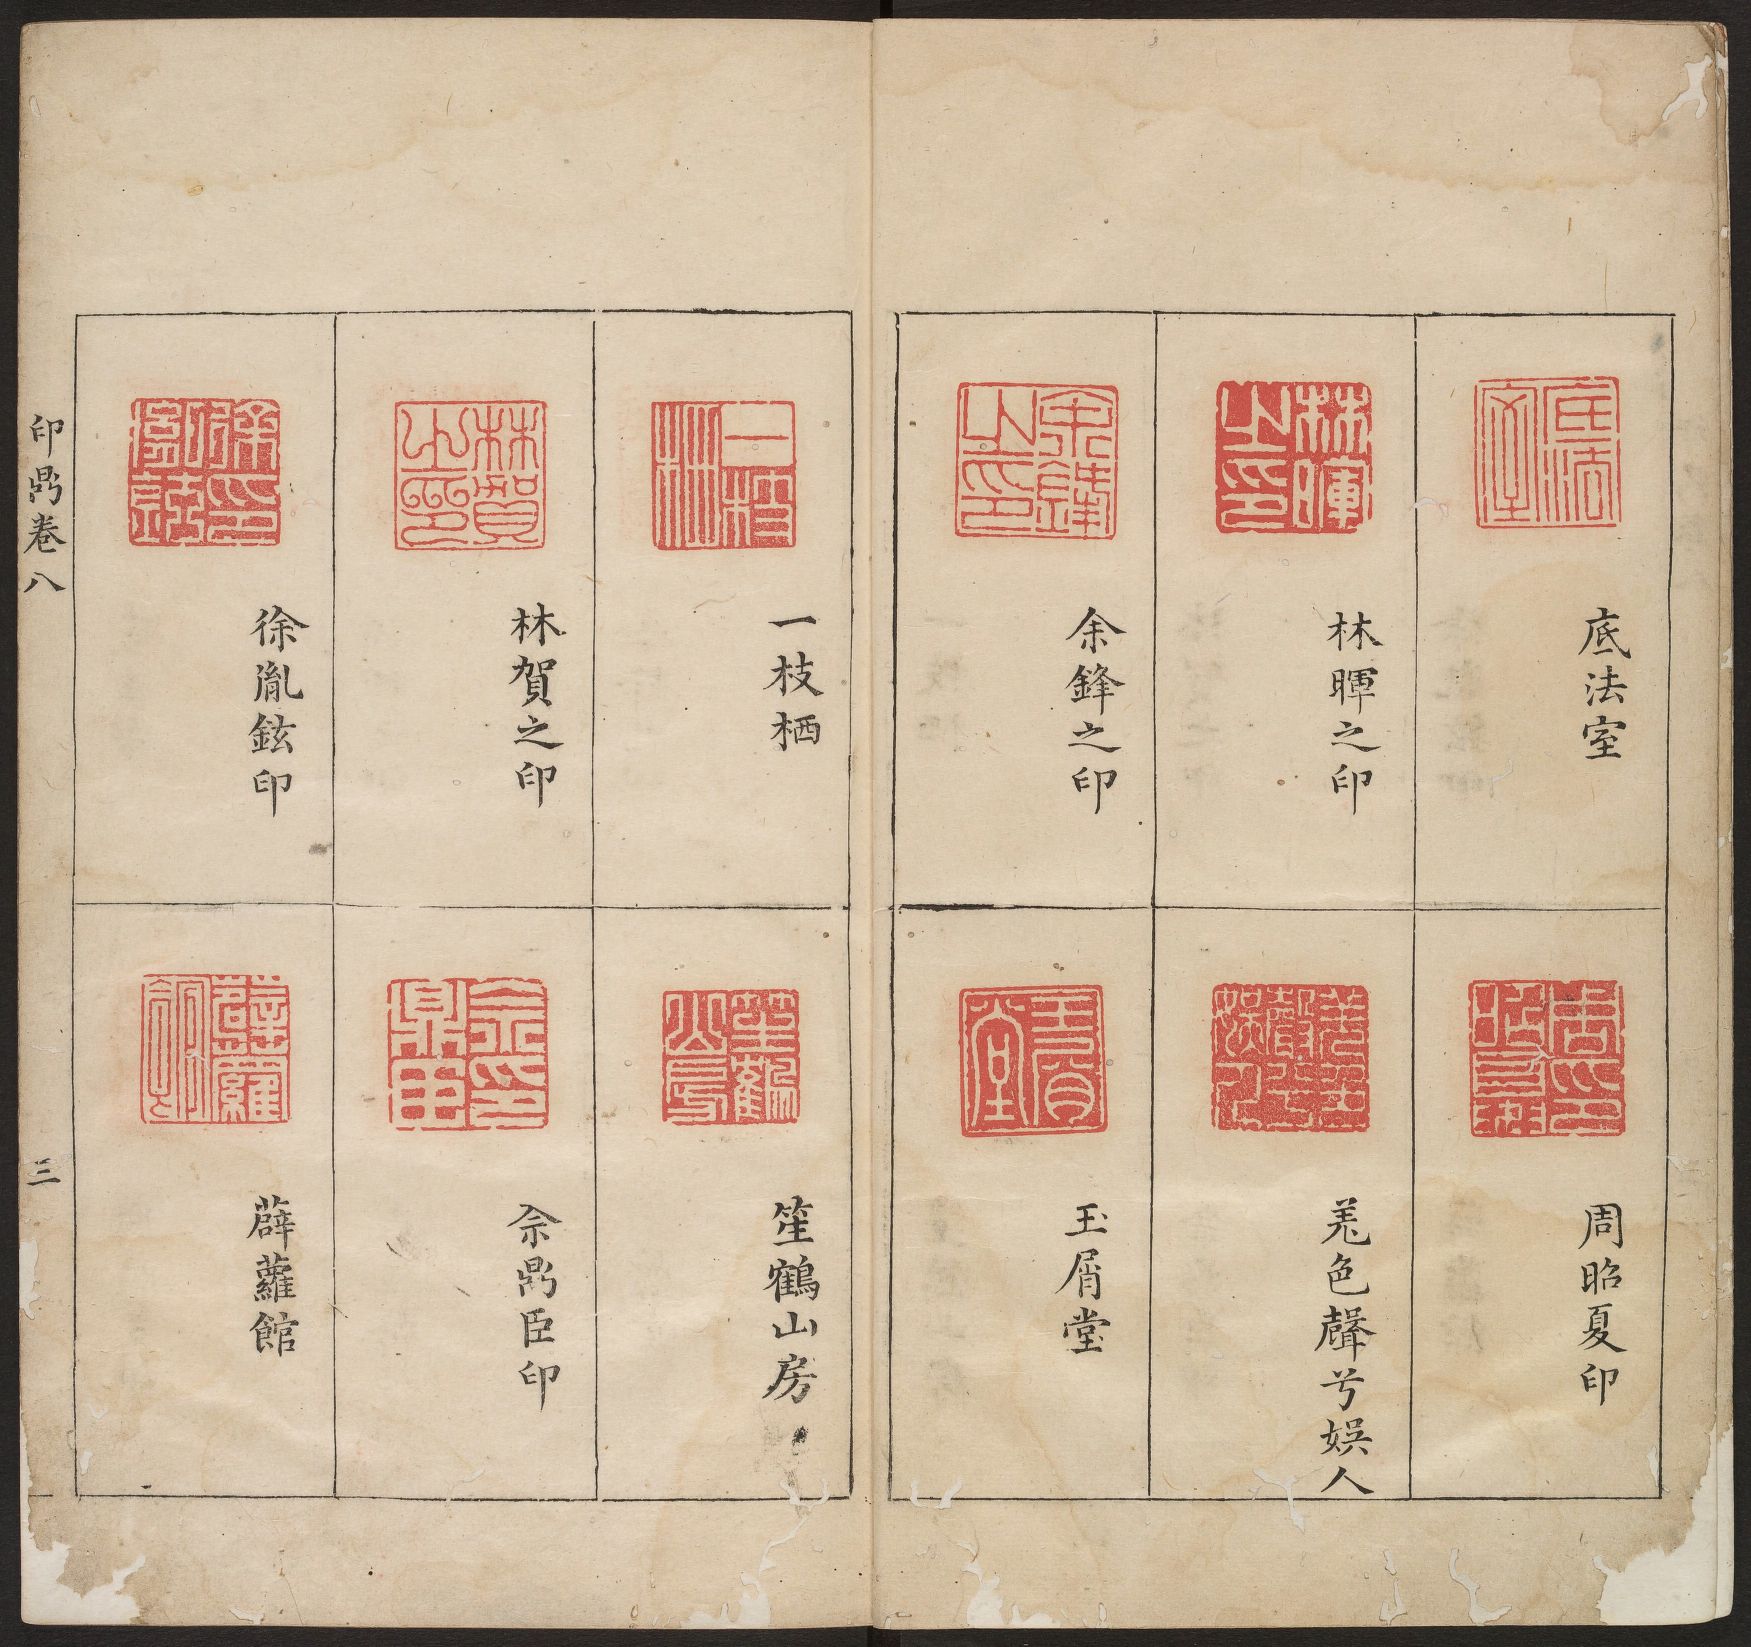 底法室
林暉之印
余鋒之印
周昭夏印
羌色聲兮娛人
玉屑堂
一枝栖
林賀之印
徐胤鉉印
笙鶴山房
佘鼎臣印
薜蘿館
印鼎卷八
三